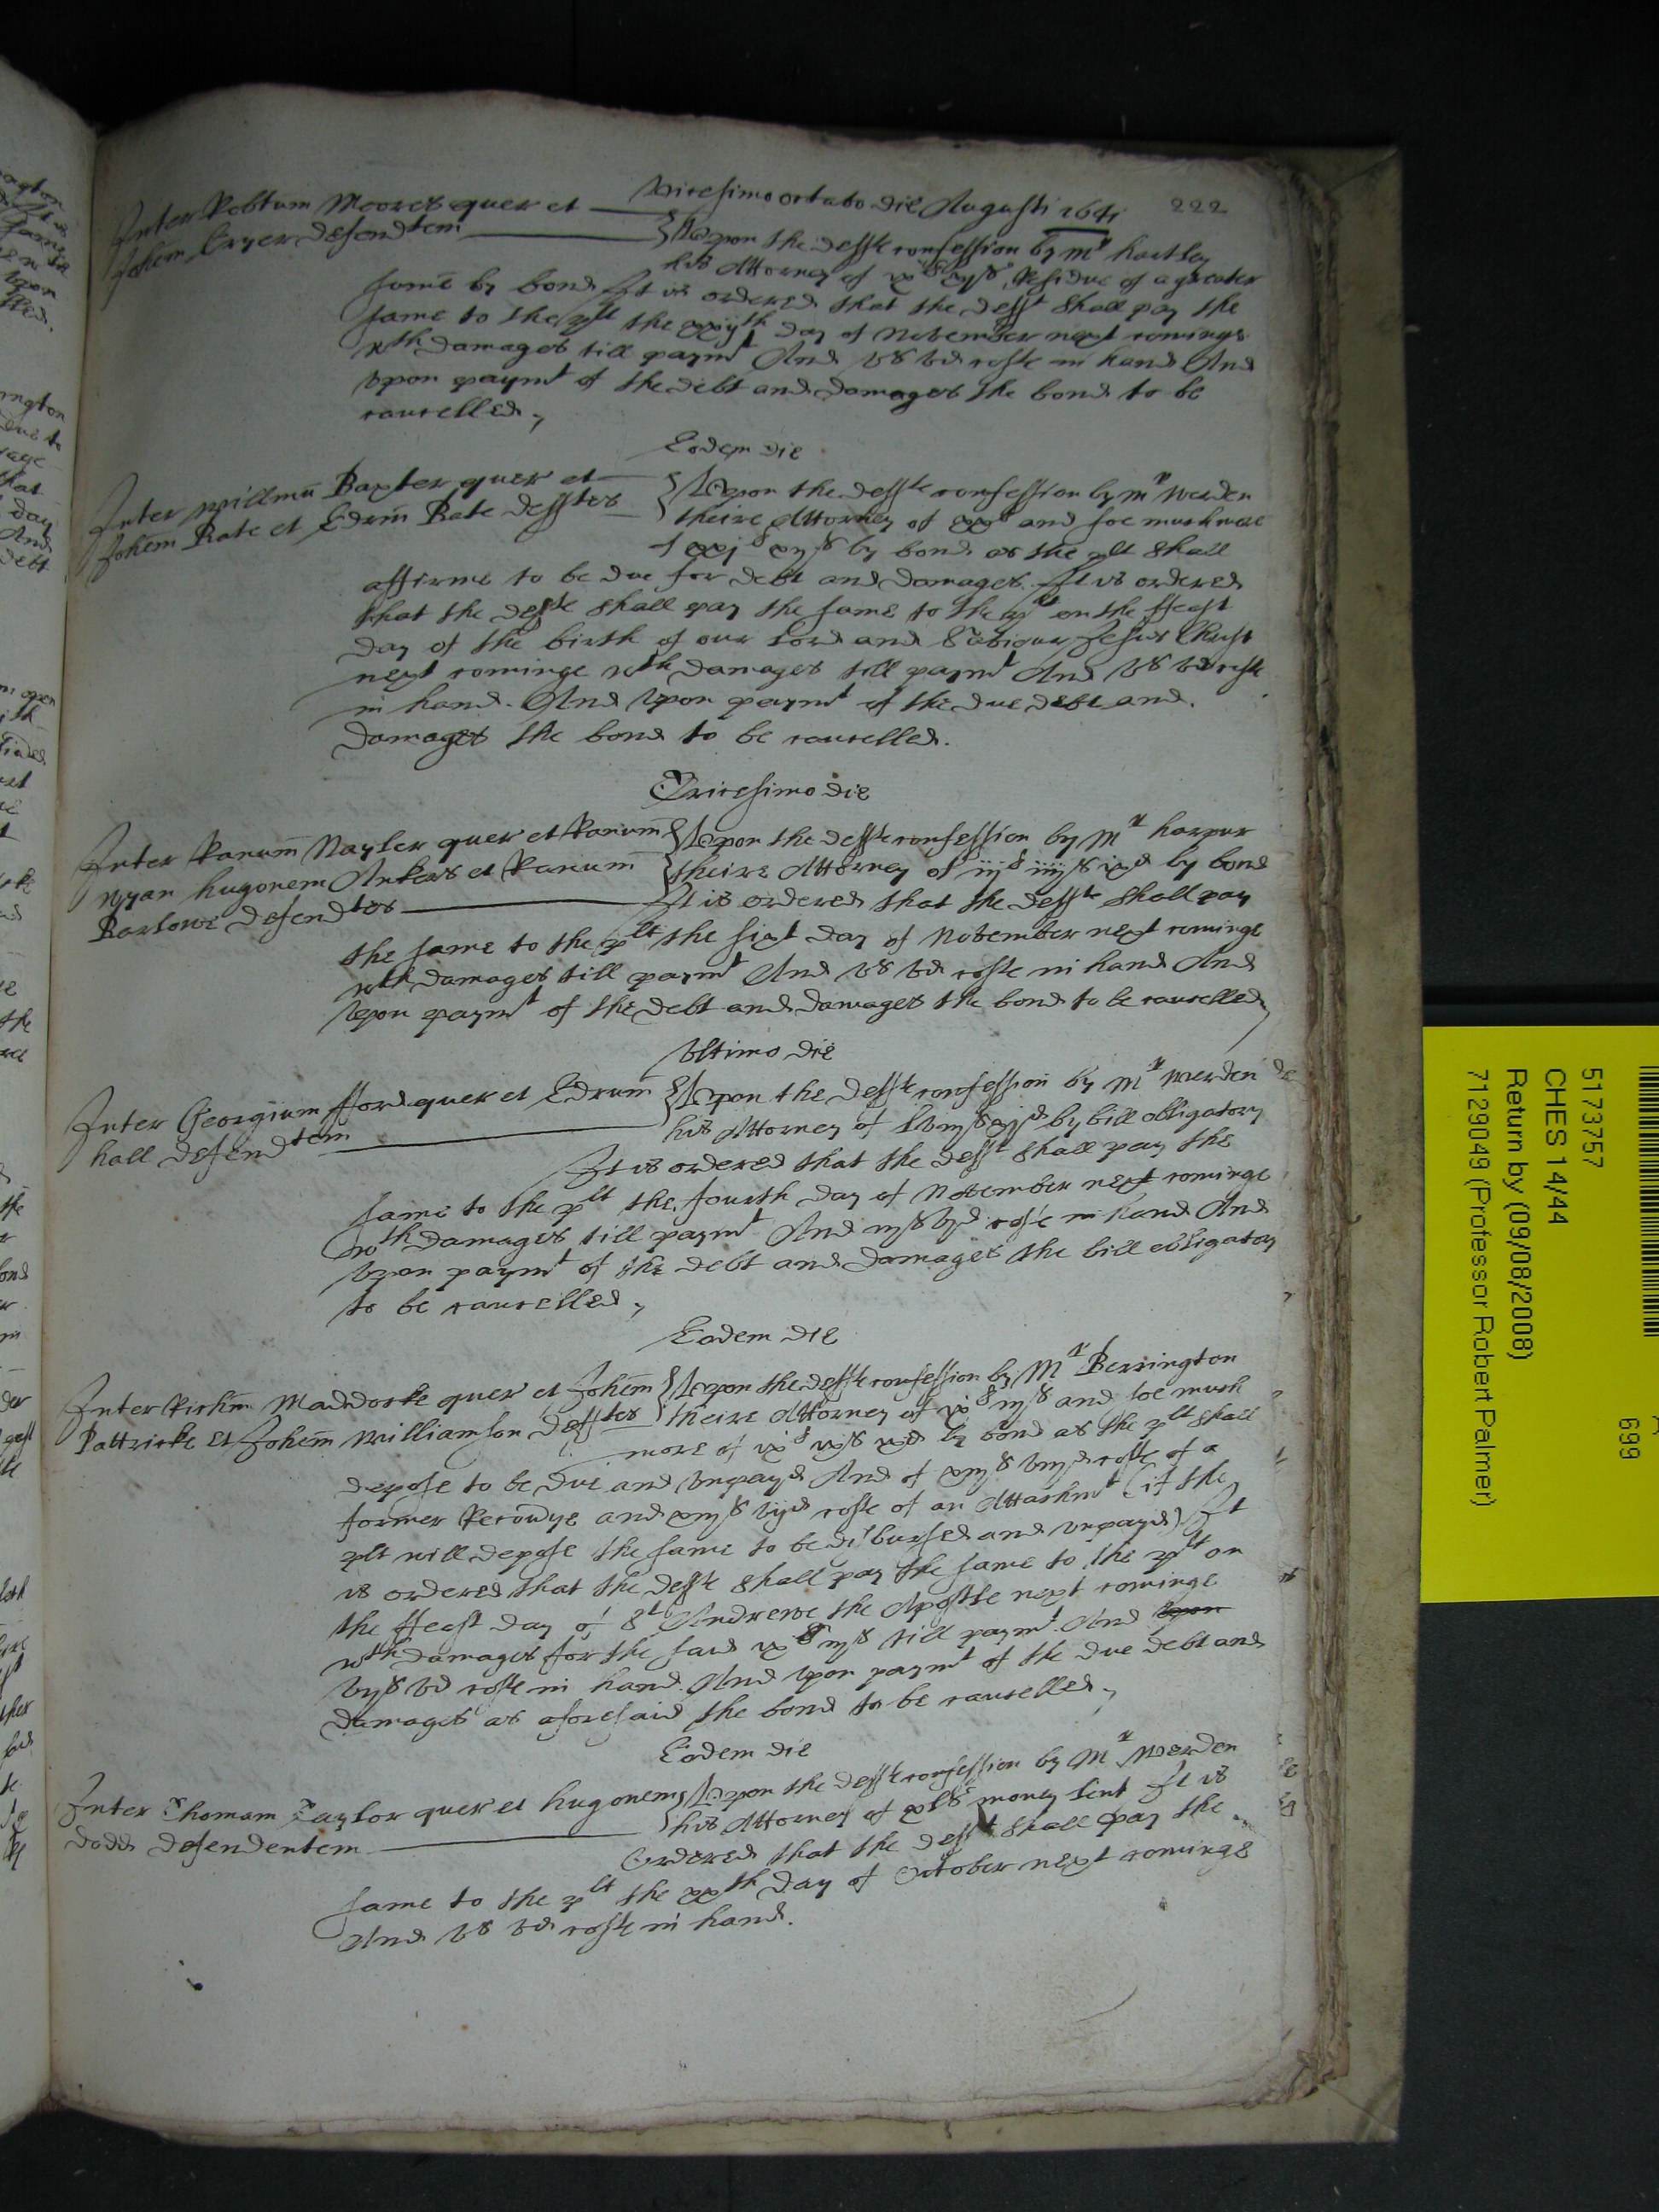 vicesimo octavo die Augusti 1641
222
Inter Robtum Moores quer et
Johem Cryer defendtem
Upon the defts confession by mr hartley
his Attorney of residue of a greater
some by bond It is ordered that the deft shall pay the
same to the plt the day of November next cominge
wth damages till paymt And vs vd coste in hand And
vpon paymt of the debt and damages the bond to be
cancelled,
Eodem die
Inter willmu Baxter quer et
Johem Bate et Edrm Bate deftes
Upon the defts confession by mr werden
theire Attorney of xxl and soe much more
of by bond as the plt shall
affirme to be due for debt and damages. It is ordered
that the defts shall pay the same to the plt on the ffeast
day of the birth of our lord and Saviour Jesus Christ
next cominge wth damages till paymt And vs vd coste
in hand. And vpon paymt of the due debt and
damages the bond to be cancelled.
Tricesimo die
Inter Ranum Nayler quer et Ranum
hugonem Ankers et Ranum
Barlowe defendtes
Upon the defts confession by Mr harpur
theire Attorney of iijl iiijs ixd by bond
It is ordered that the defts shall pay
the same to the plt the first day of November next cominge
wth damages till paymt And vs vd coste in hand And
vpon paymt of the debt and damages the bond to be cancelled,
Vltimo die
Inter Georgium fford quer et Edrum
hall defendtem
Upon the defts confession by Mr werden
his Attorney of by bill obligatory
It is ordered that the deft shall pay the
same to the plt the fourth day of November next cominge
wth damages till paymt And iijs vjd coste in hand And
vpon paymt of the debt and damages the bill obligatory
to be cancelled,
Eodem die
Inter Richm Maddocke quer et Johem
Pattricke et Johem williamson deftes
Upon the defts confession by Mr Berrington
theire Attorney of ixl iijs and soe much
more of by bond as the plt shall
depose to be due and vnpayd And of xiijs viijd coste of a
former Recoudye and xiijs vijd coste of an Attachmt (if the
plt will depose the same to be disbursed and vnpayd) It
is ordered that the defts shall pay the same to the plt on
the ffeast day of St Andrewe the Apostle next cominge
wth damages for the said ixl iijs till paymt. And vpon
vijs vd coste in hand. And vpon paymt of the due debt and
damages as aforesaid the bond to be cancelled,
Eodem die
Inter Thomam Taylor quer et hugonem
dodd defendentem
Upon the defts confession by Mr werden
his Attorney of xls money lent It is
Ordered that the deft shall pay the
same to the plt the xxth day of October next cominge
And vs vd coste in hand.
5173757
CHES 14/44
Return by (09/08/2008)
7129049 (Professor Robert Palmer)
699